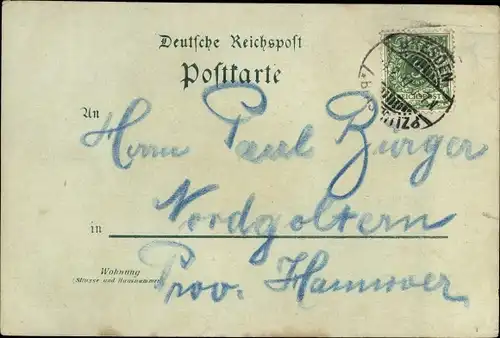 Deutsche Reichspost
Postkarte
DRESDEN
An
Herrn Paul Burger
in
Nordgoltern
Wohnung
(Strasse und Hausnummer)
Prov. Hannover